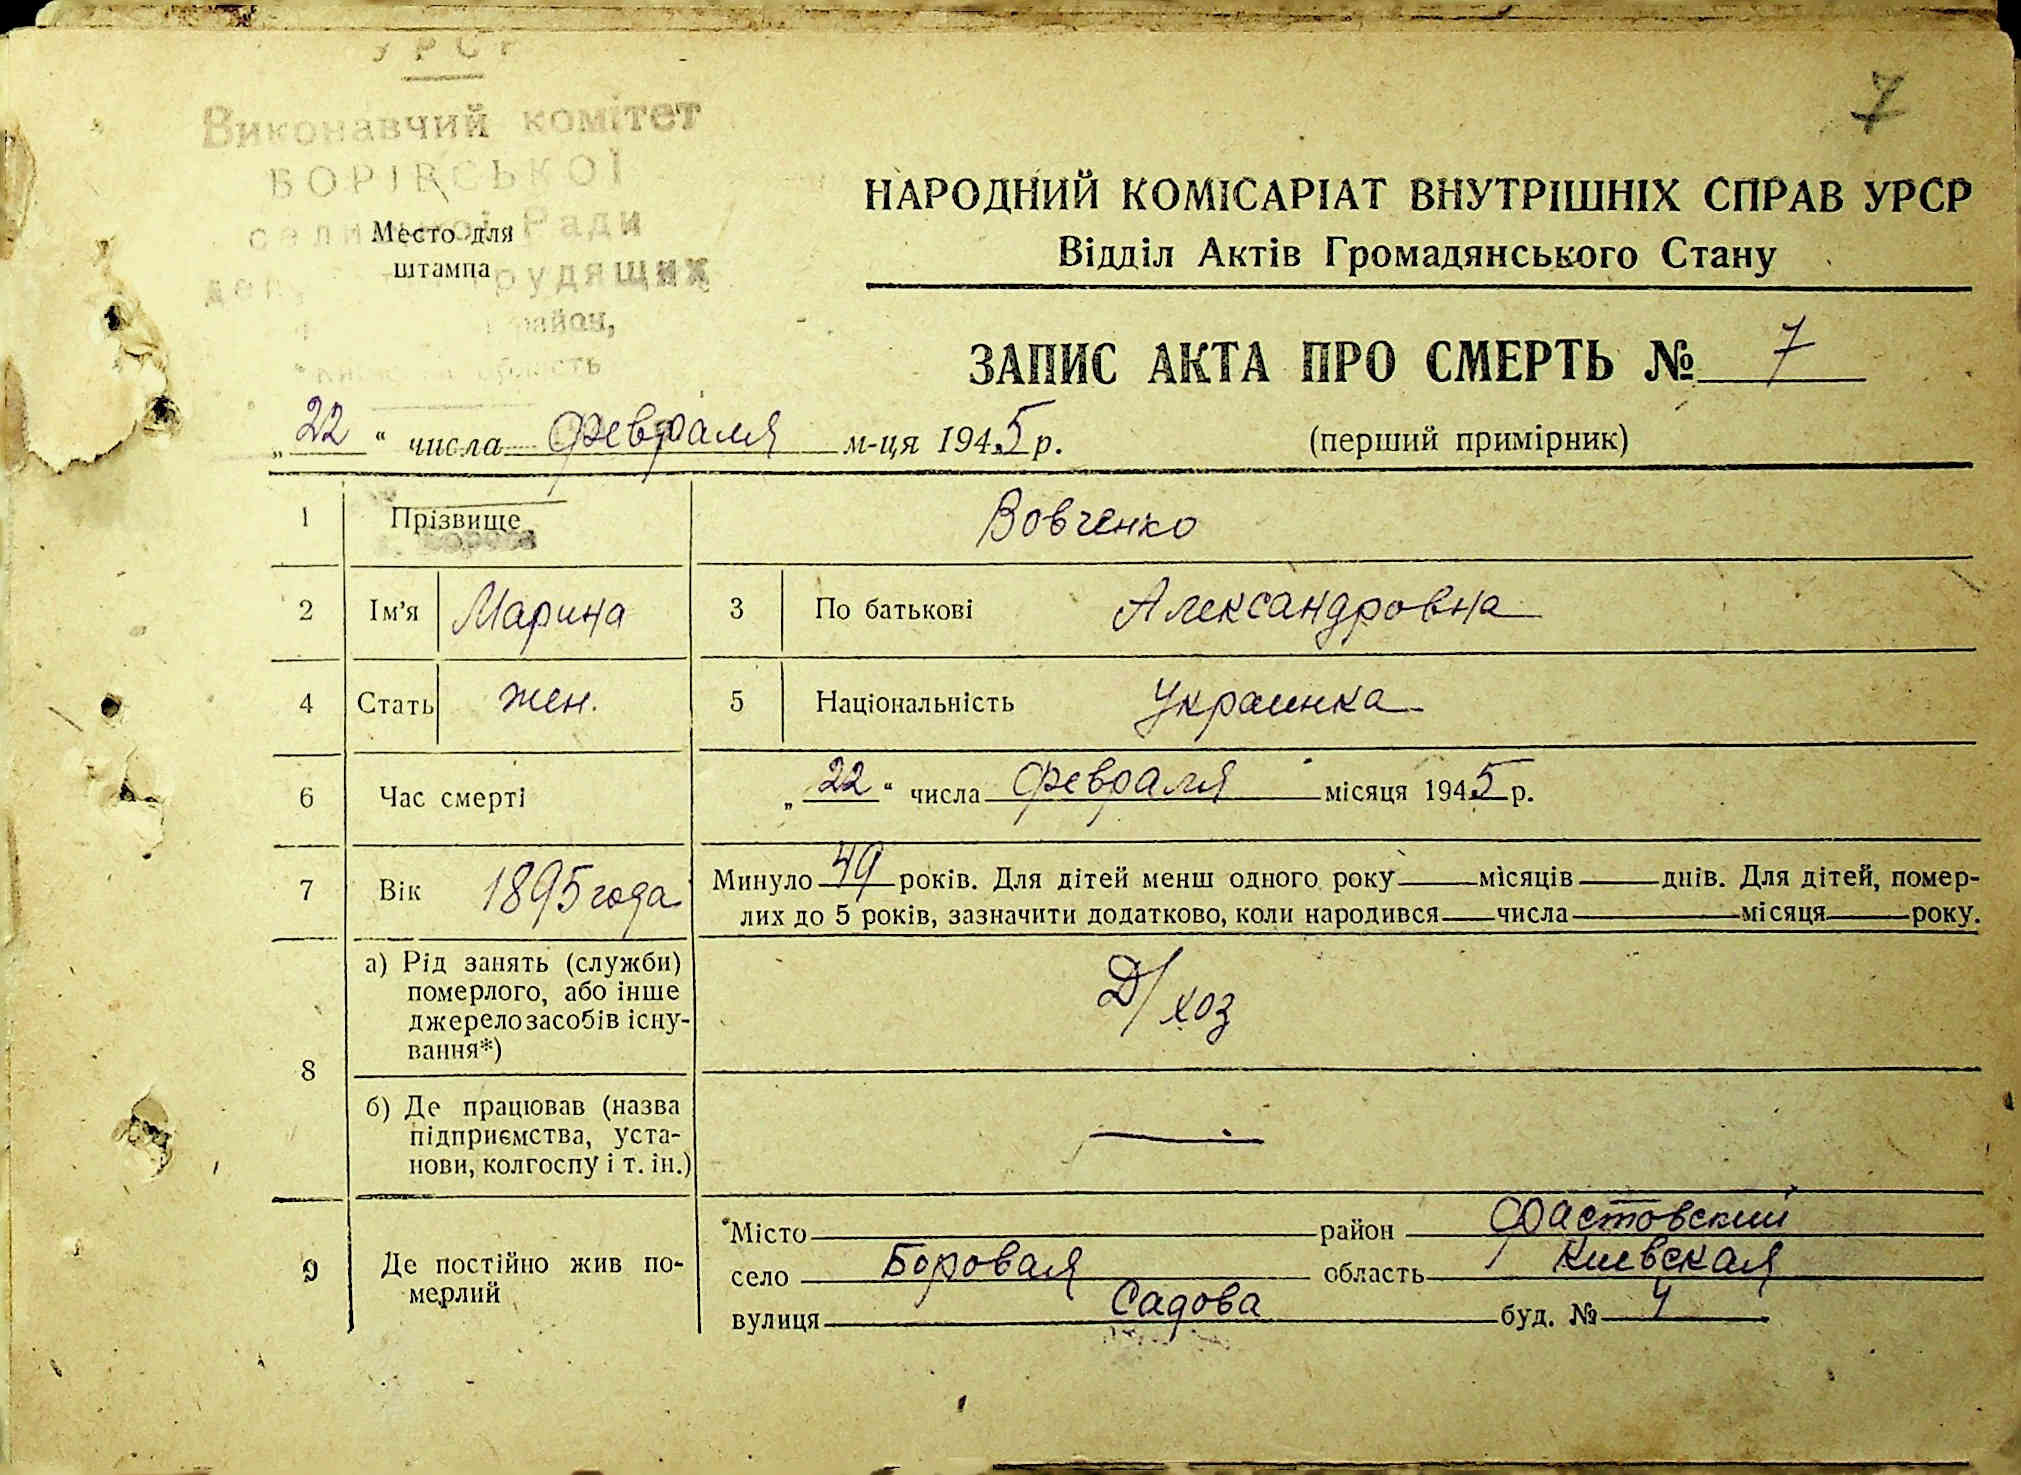 УРСР
Виконавчий комітет
БОРІВСЬКОЇ
селищної Ради
Место для
штампа
трудящих
район,
область
7
НАРОДНИЙ КОМІСАРІАТ ВНУТРІШНІХ СПРАВ УРСР
Відділ Актів Громадянського Стану
ЗАПИС АКТА ПРО СМЕРТЬ № 7
„22“ числа февраля м-ця 1945 р.
(перший примірник)
1 Прізвище Вовченко
2 Ім'я Марина 3 По батькові Александровна
4 Стать жен. 5 Національність Украинка
6 Час смерті „22“ числа февраля місяця 1945 р.
7 Вік 1895 года Минуло 49 років. Для дітей менш одного року місяців днів. Для дітей, помер-
лих до 5 років, зазначити додатково, коли народився числа місяця року.
8 а) Рід занять (служби)
померлого, або інше
джерело засобів існу-
вання*)
Д/хоз
б) Де працював (назва
підприємства, уста-
нови, колгоспу і т. ін.)
—
9 Де постійно жив по-
мерлий
Місто район Фастовский
село Боровая область Киевская
вулиця Садова буд. № 4